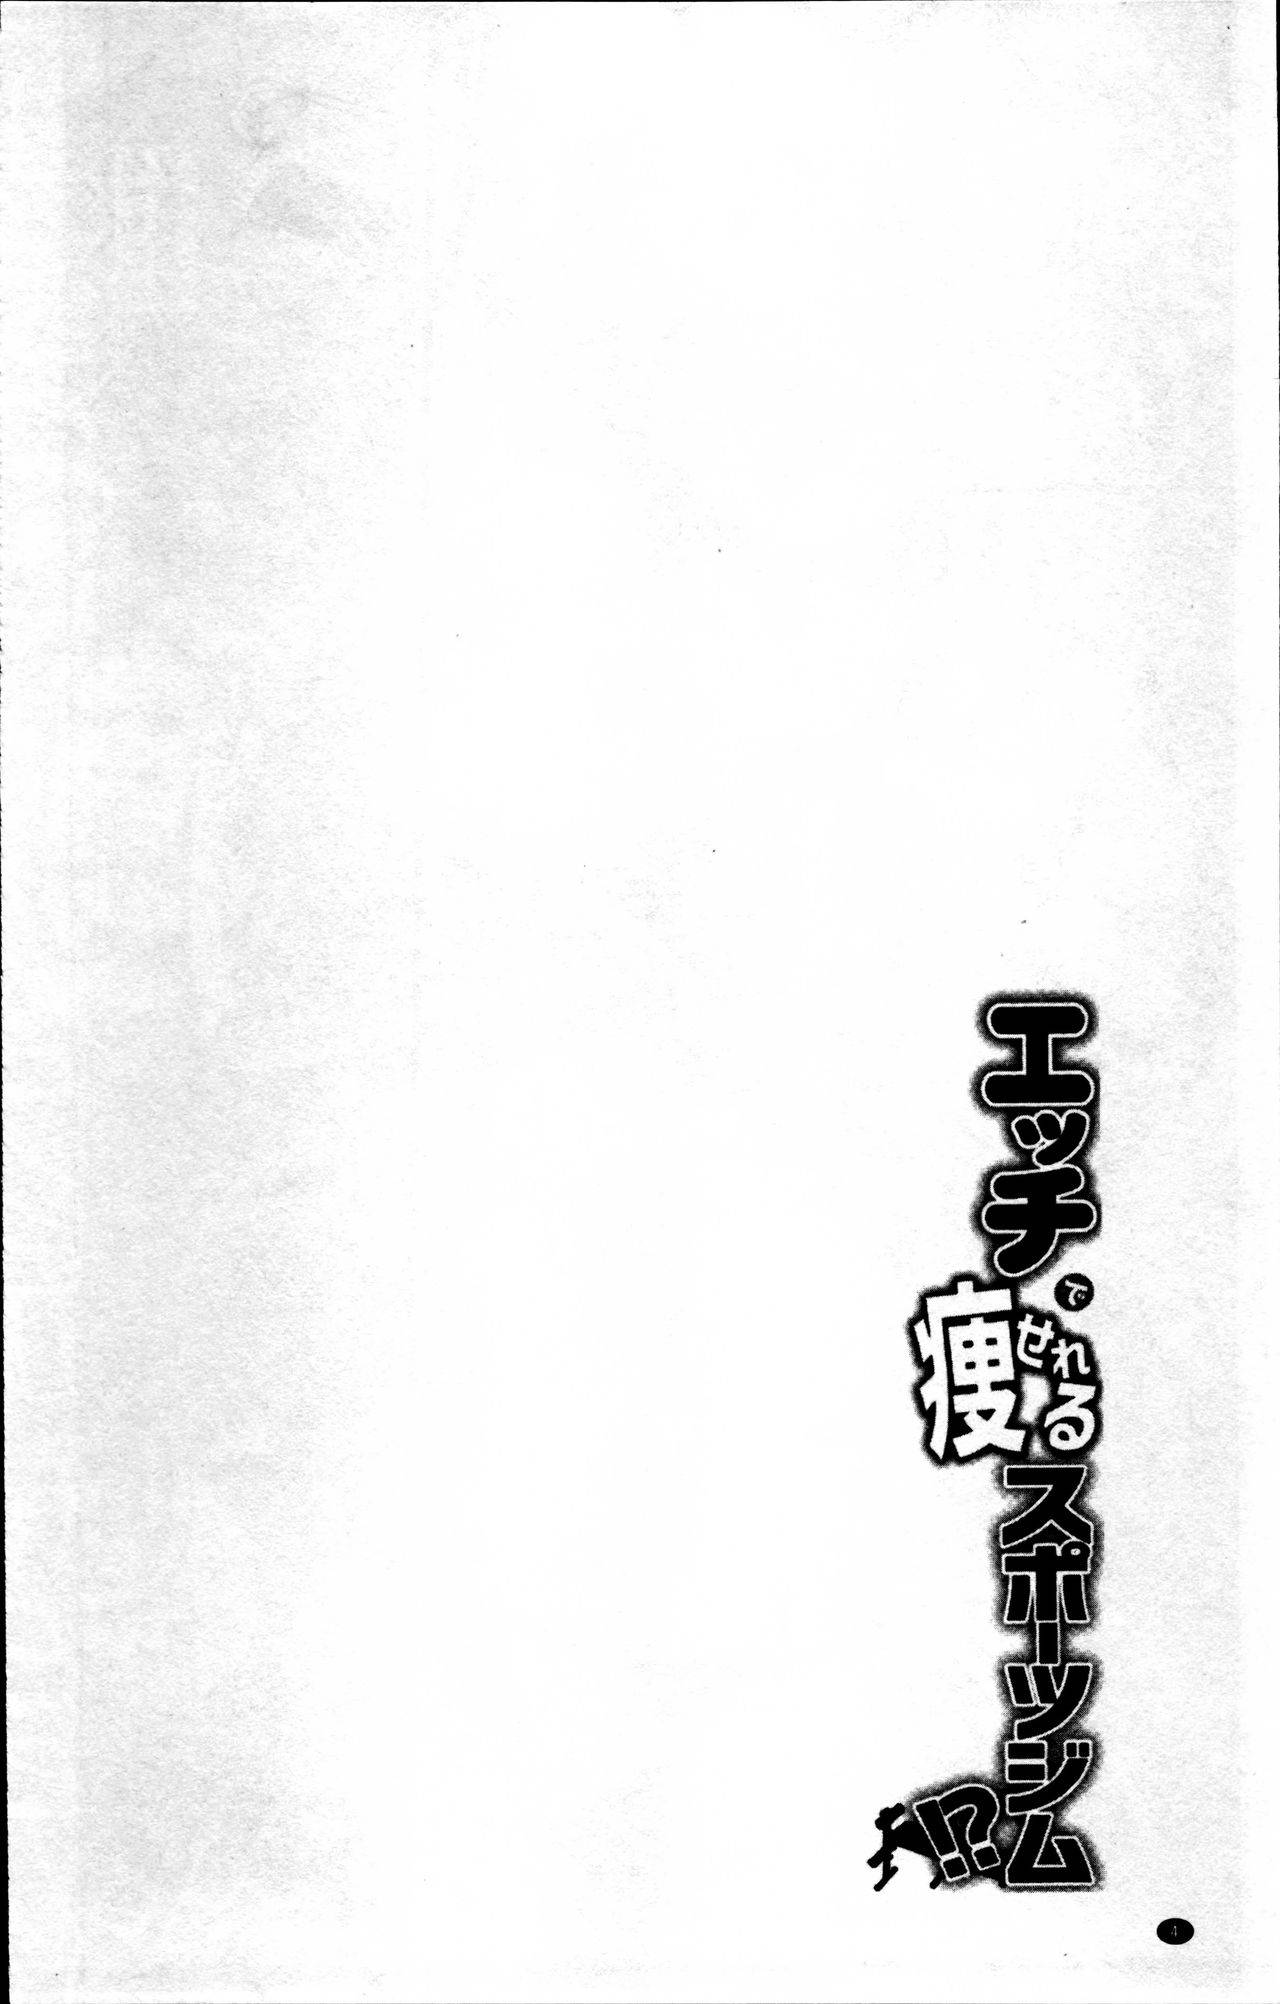 エッチで痩せれるスポーツジム!?
4